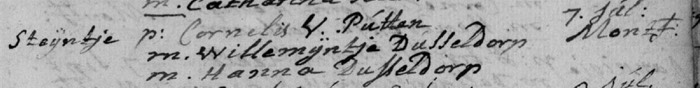 m. Catharina
Steijntje p: Cornelis V. Putten 7. Júl:
m. Willemijntje Dusseldorp Montf:
m. Hanna Dusseldorp